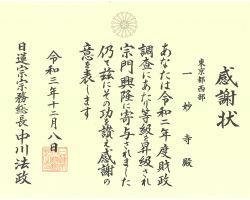 感謝状
東京都西部
一妙寺殿
あなたは令和二年度財政
調査にあたり等級を昇級され
宗門興隆に寄与されました
仍て茲にその功を讃え感謝の
意を表します
令和三年十二月八日
日蓮宗宗務総長 中川法政